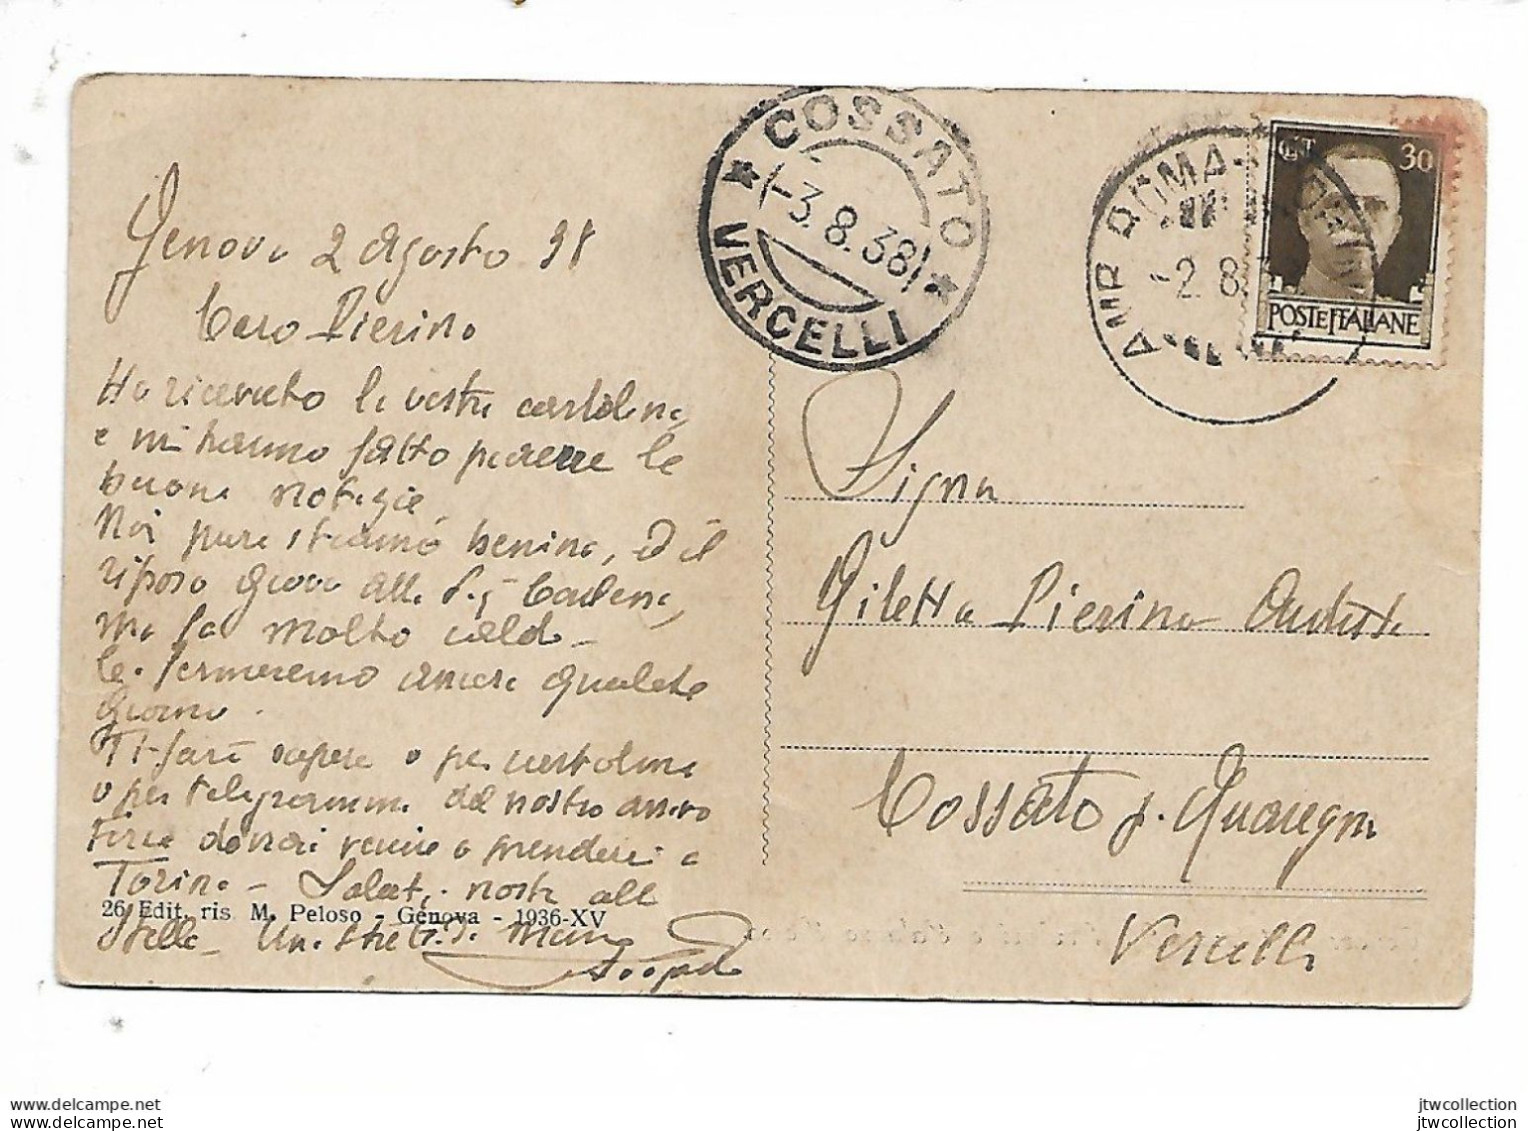 Genova 2 Agosto 38
Caro Pierino
Ho ricevuto la vostra cartolina,
e mi hanno fatto piacere le
buone notizie.
Noi pure stiamo benino, ed il
riposo giova alla Sig
ma fa molto caldo -
Ci fermeremo ancora qualche
giorno.
Ti farò sapere o per cartolina
o per telegramma del nostro arrivo
dovrai venire a prendere a
Torino - Saluti nostri alle
26 Edit. ris. M. Peloso - Genova - 1936-XV
Stella - Una stretta di mano
COSSATO
-3.8.38
VERCELLI
AMB ROMA-TORINO
-2.8
CENT 30
POSTE ITALIANE
Signor
Giletta Pierino
Cossato p. Quaregna
Vercelli
www.delcampe.net
www.delcampe.net
jtwcollection
jtwcollection